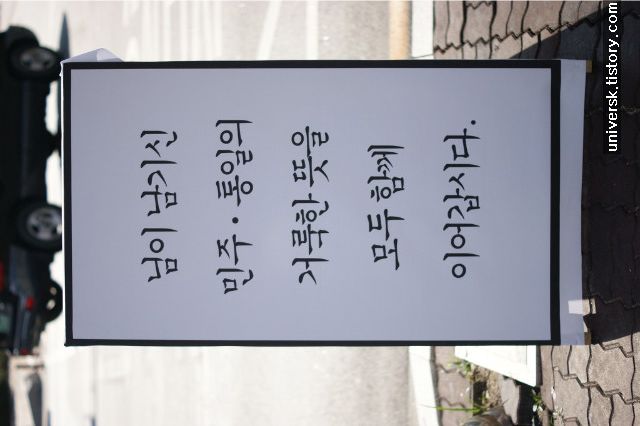 님이 남기신
민주·통일의
거룩한 뜻을
모두 함께
이어갑시다.
universk.tistory.com